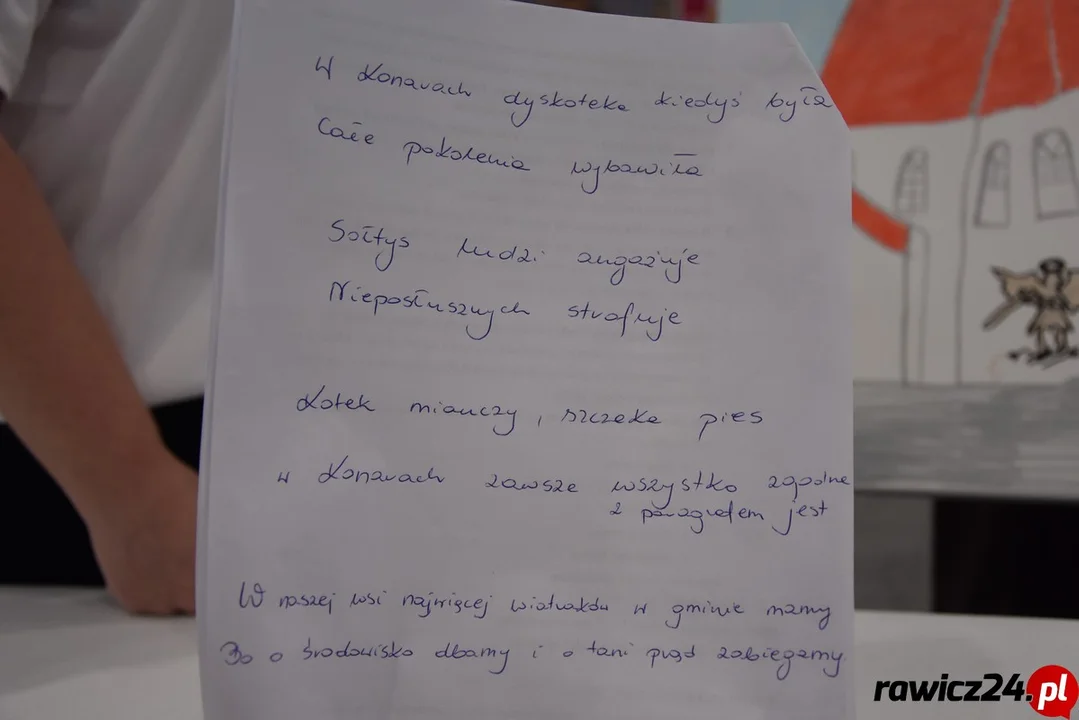 W Konarach dyskoteka kiedyś była
Całe pokolenia wybawiła
Sołtys ludzi angażuje
Nieposłusznych strofuje
Kotek miauczy, szczeka pies
w Konarach zawsze wszystko zgodne
z paragrafem jest
W naszej wsi najwięcej wiatraków w gminie mamy
Bo o środowisko dbamy i o tani prąd zabiegamy.
rawicz24.pl